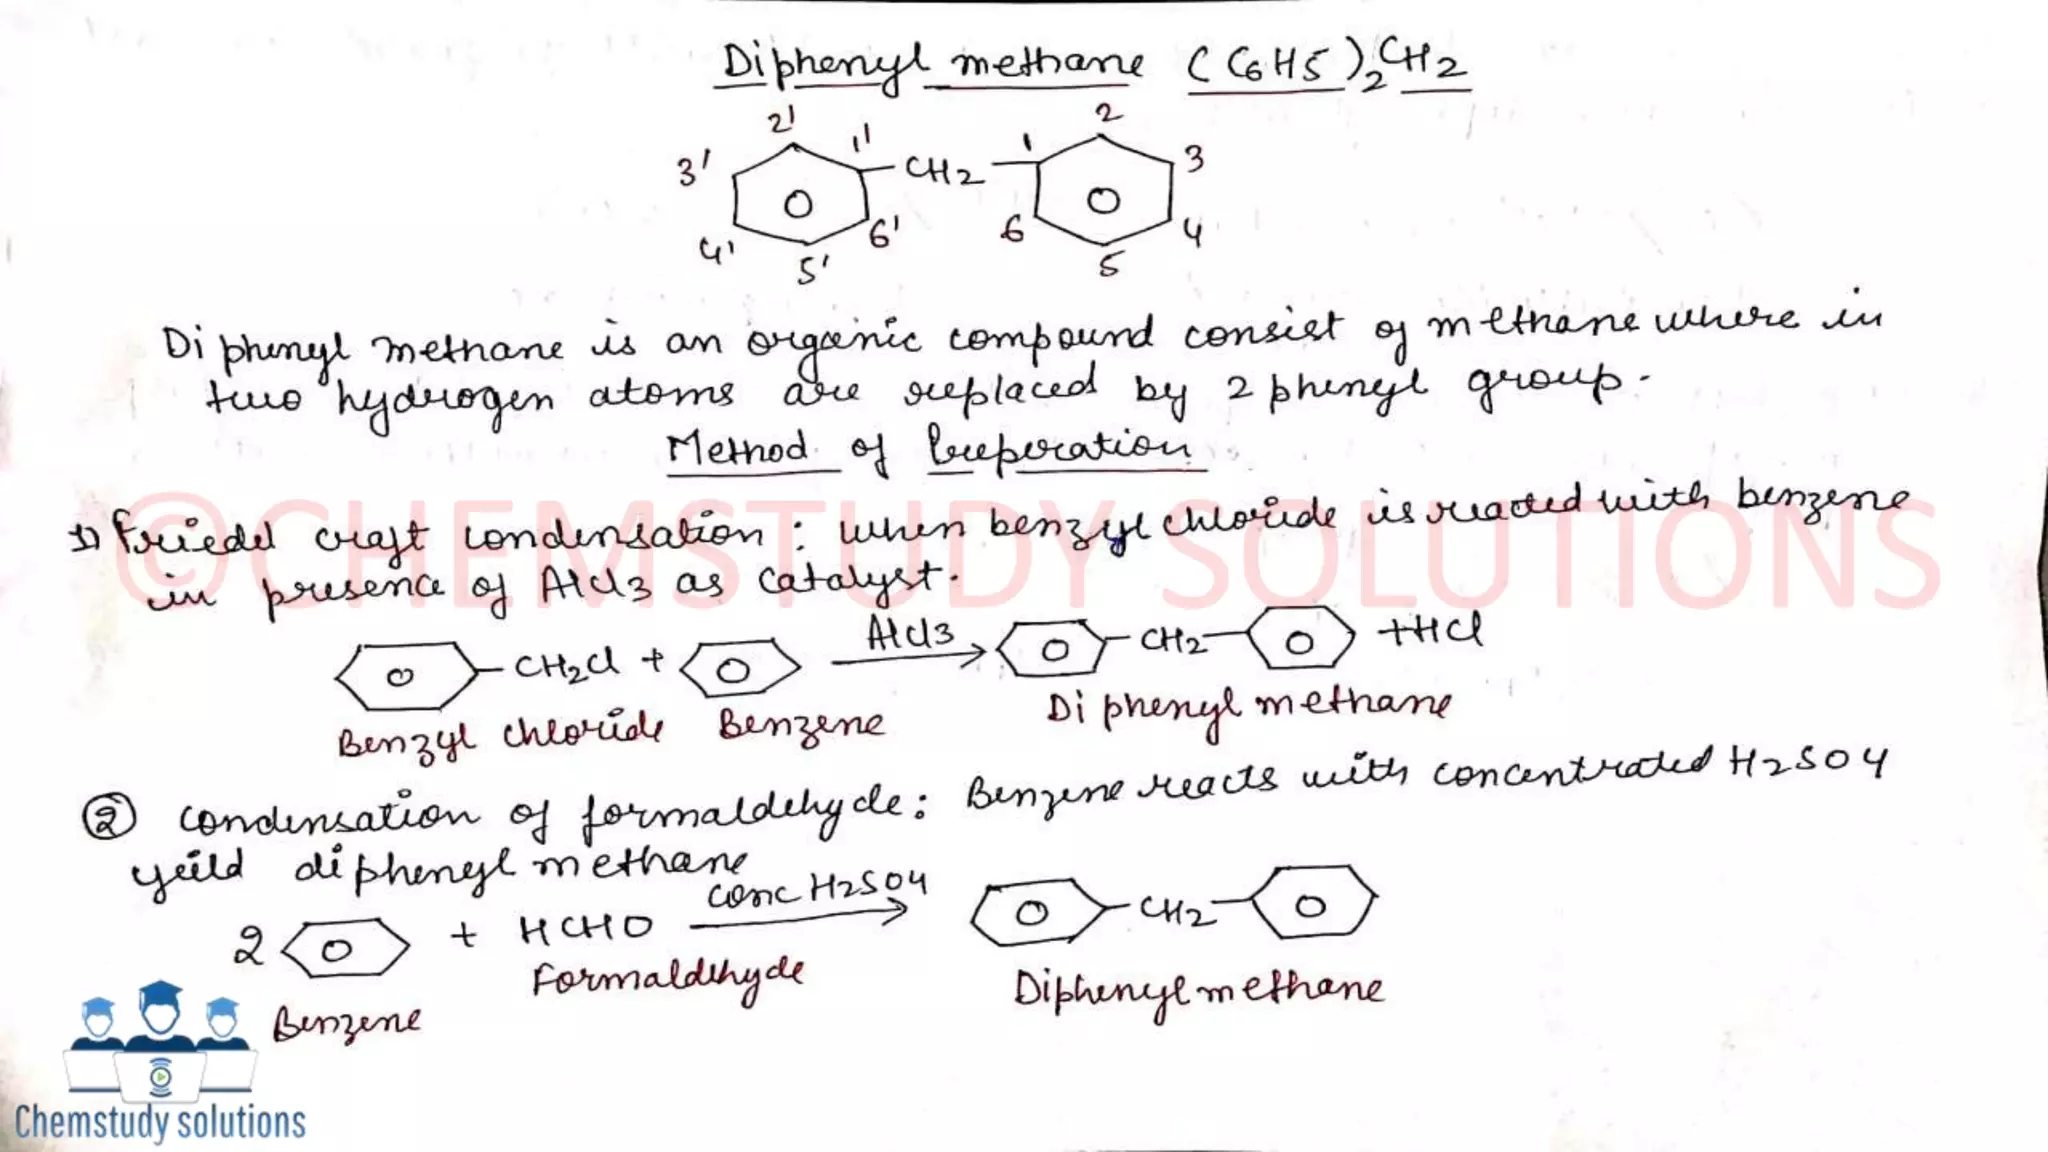 Diphenyl methane (C6H5)2CH2
2' 1' 1 2
3' CH2 3
4' 5' 6' 6 5 4
Diphenyl methane is an organic compound consist of methane where in
two hydrogen atoms are replaced by 2 phenyl group.
Method of Preperation
1) Friedel craft condensation: when benzyl chloride is reacted with benzene
in presence of AlCl3 as catalyst.
CH2Cl + AlCl3 CH2 + HCl
Benzyl chloride Benzene Diphenyl methane
② condensation of formaldehyde: Benzene reacts with concentrated H2SO4
yeild diphenyl methane
2 + HCHO conc H2SO4 CH2
Benzene Formaldehyde Diphenyl methane
©CHEMSTUDY SOLUTIONS
Chemstudy solutions